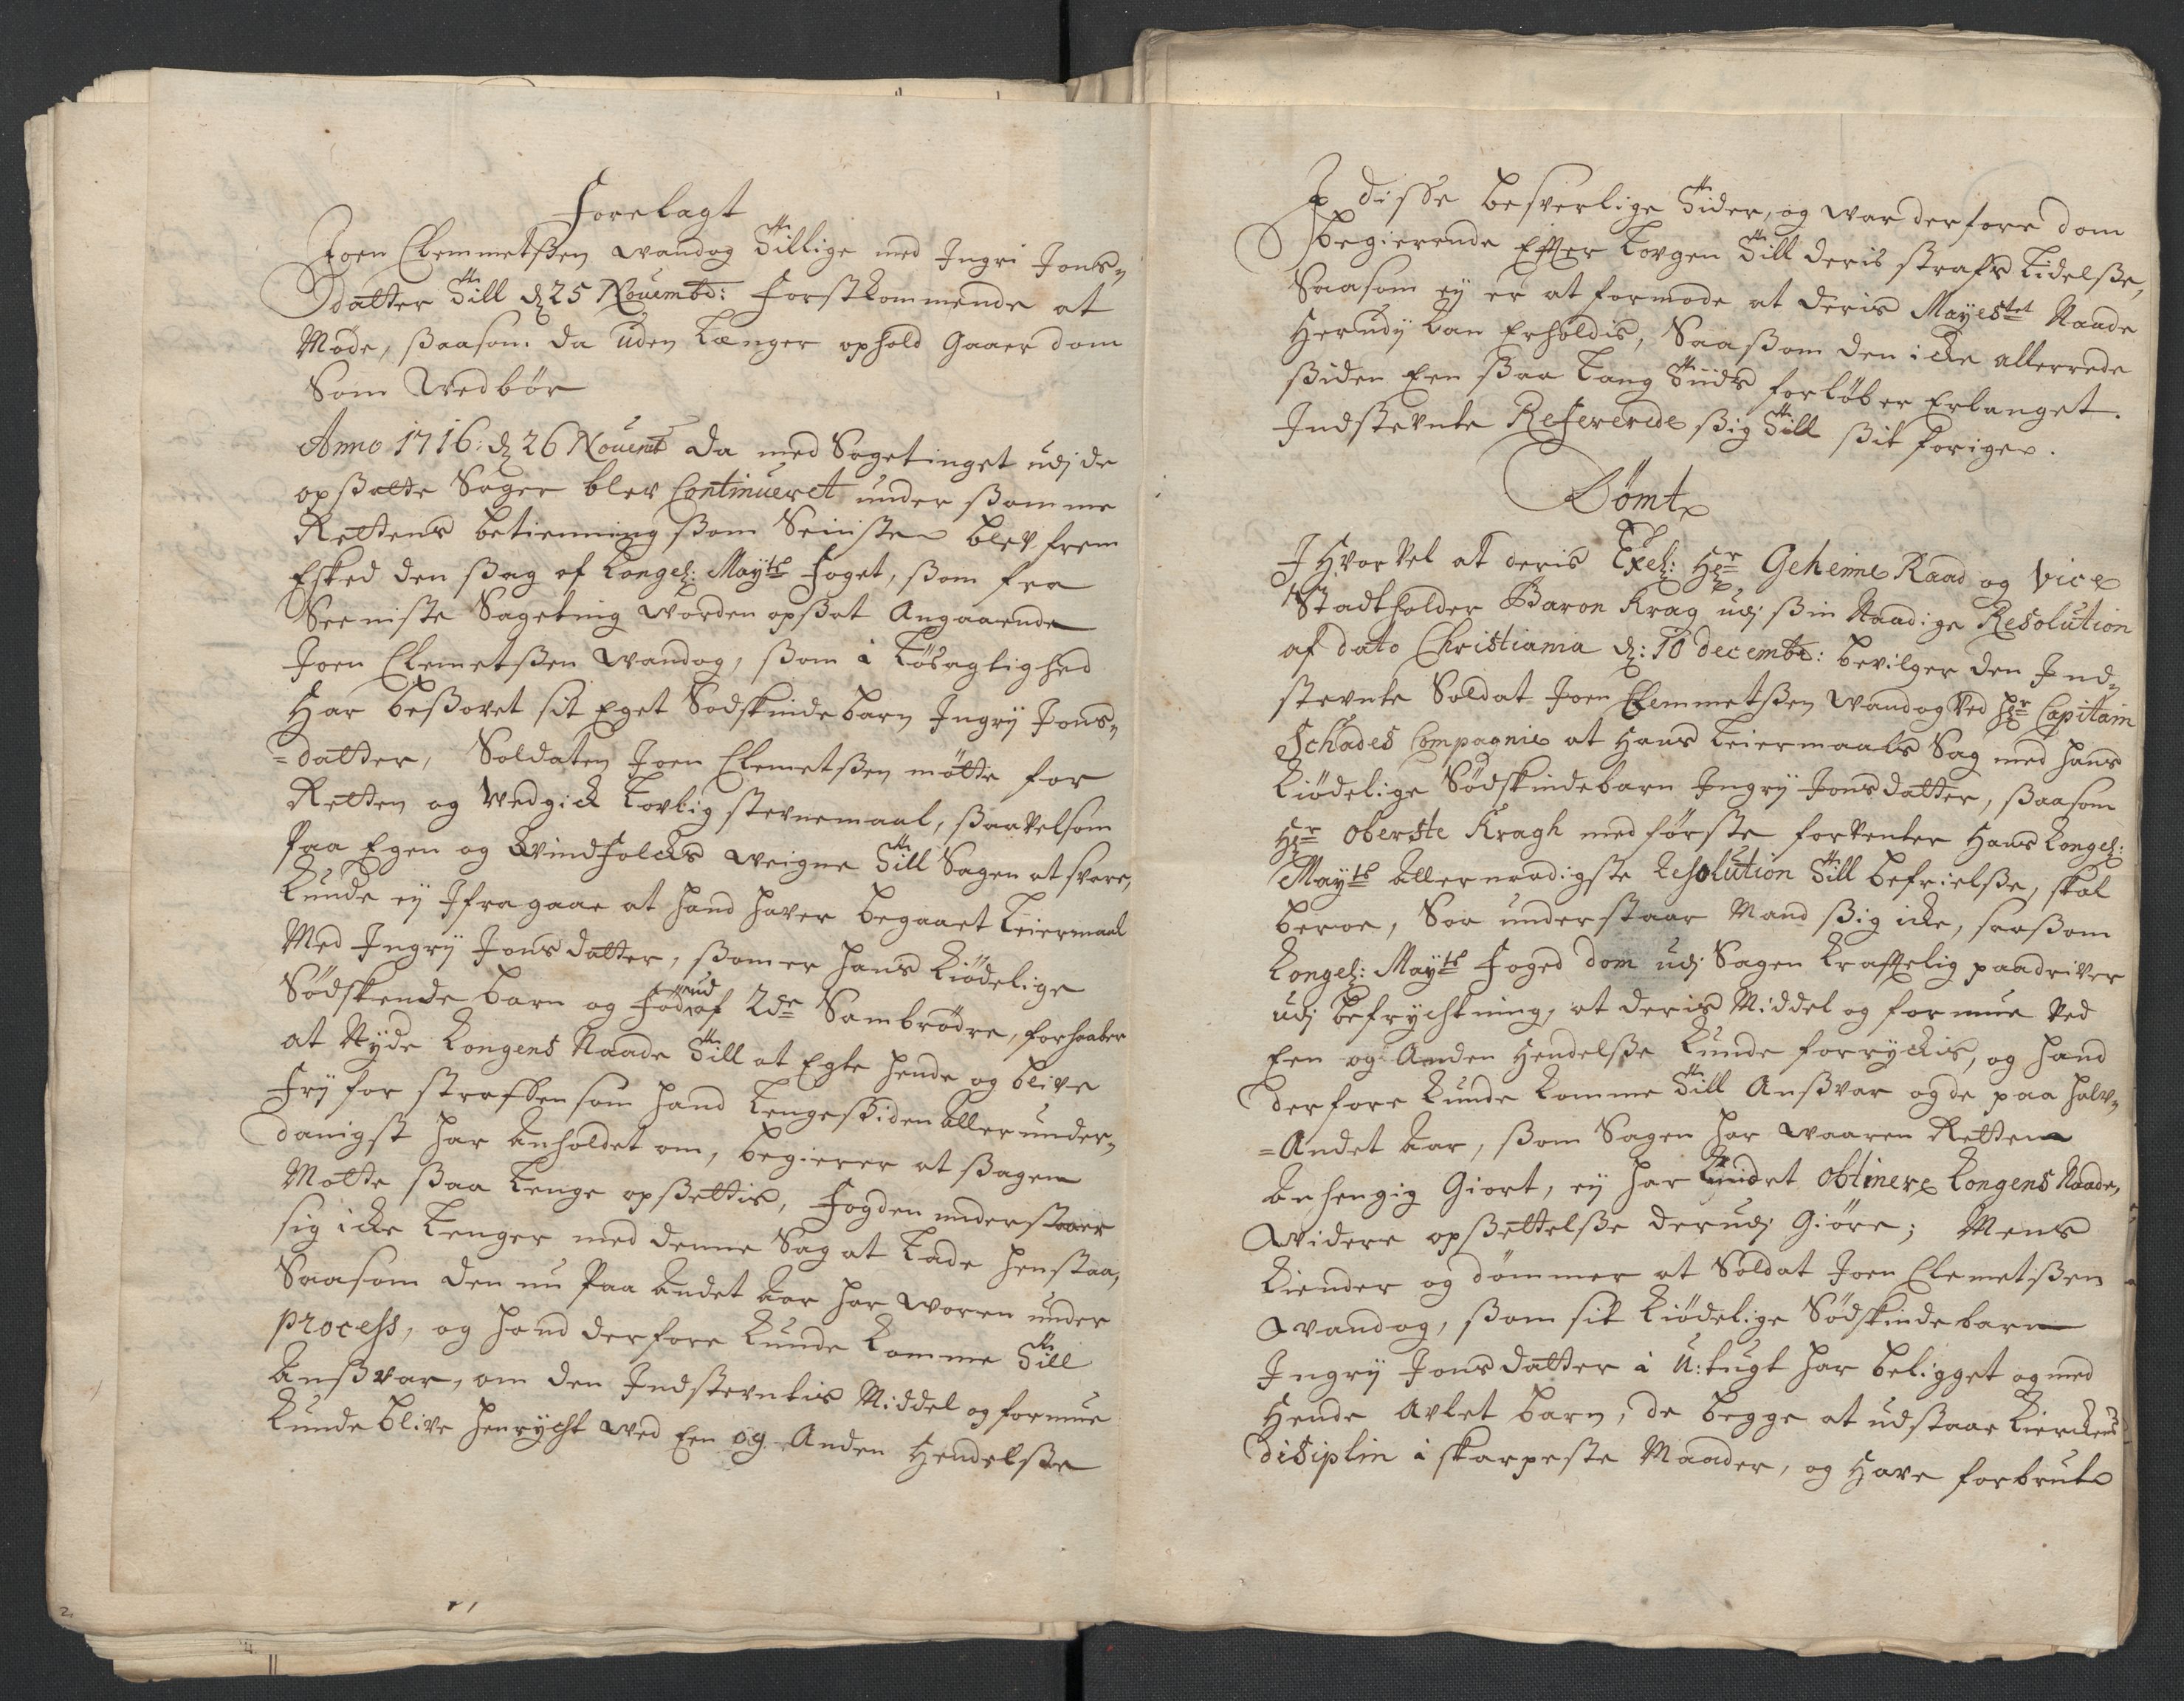 Forelagt
Joen Clemmetsen Wandog Tillige med Ingri Jons-
datter Till d 25 Novembr: Førstkommende at
Møde, saasom da uden Længer ophold Gaaer dom
Som Wedbør
Anno 1716: d 26 Novemb Da med Sagetinget udj de
opsatte Sager blev Continueret under samme
Rettens betienning som Seiniste blev frem
Esked den sag af Kongel: Mayts Foget, som fra
Seeniste Sageting worden opsat Angaaende
Joen Clemetsen Wandog, som i Løsagtighed
Har besovet sit Eget Sødskindebarn Ingrij Jons-
=datter, Soldaten Joen Clemetsen møtte for
Retten og Wedgick Lovlig stevnemaal, saavelsom
Paa Egen og Qvindfolcks weigne Till Sagen at svare,
Kunde ej Ifragaae at hand haver begaaet Leiermaal
Med Ingrij Jonsdatter, som er hans Kiødelige
Sødskende barn og Fød ud af 2de Sambrødre, forhaaber
at Nyde Kongens Naade Till at Egte hende og blive
Frj for straffen som hand Lenge siden Aller under-
danigst har Anholdet om, begierer at sagen
Motte saa Lenge opsettis, Fogden understaaer
sig icke Lenger med denne Sag at Lade henstaa,
Saasom den nu Paa Andet Aar har woren under
Process, og hand derfore Kunde Komme Till
Ansvar, om den Indstevntis Middel og formue
Kunde blive henrycht wed Een og Anden Hendelse
I disse besverlige Tider, og war derfore dom
begierende Efter Lovgen Till deris strafs Lidelse,
Saasom ej er at formode at deris Mayestet Naade
Herudj Kan Erholdis, Saasom den icke allerrede
siden Een saa Lang Tiids forløb er Erlanget.
Indstevnte Refererede sig Till sit forige.
Dømt
I Hvor Vel at deris Exel: Hr Geheime Raad og Vice
Stadtholder Baron Krag udj sin Naadige Resolution
af dato Christiania d: 10 decembr: bevilger den Ind-
stevnte Soldat Joen Clemmetsen Wandog Ved Hr Capitain
Schades Compagnie at Hans Leiermaals Sag med hans
Kiødelige Sødskindebarn Ingrij Jonsdatter, saasom
Hr Oberste Kragh med første forventer Hans Kongel:
Mayts Allernaadigste Resolution Till befrielse, skal
beroe, Saa understaar Mand sig icke, saasom
Kongel: Mayts Foged dom udj Sagen Kraftelig paadriver
udj befrychtning, at deris Middel og formue Ved
Een og Anden Hendelse Kunde forryckis, og hand
derfore Kunde Komme Till Ansvar og de paa halv-
=Andet Aar, som Sagen har waaren Retten
Anhengig Giort, ej har Kundet obtinere Kongens Naade,
widere opsettelse derudj Giøre; Mens
Kiender og dømmer at Soldat Joen Clemetsen
Wandog, som sit Kiødelige Sødskindebarn
Ingrij Jonsdatter i U:tugt har beligget og med
Hende Avlet barn, de begge at udstaae Kierckens
disiplin i skarpeste Maader, og Have forbrut